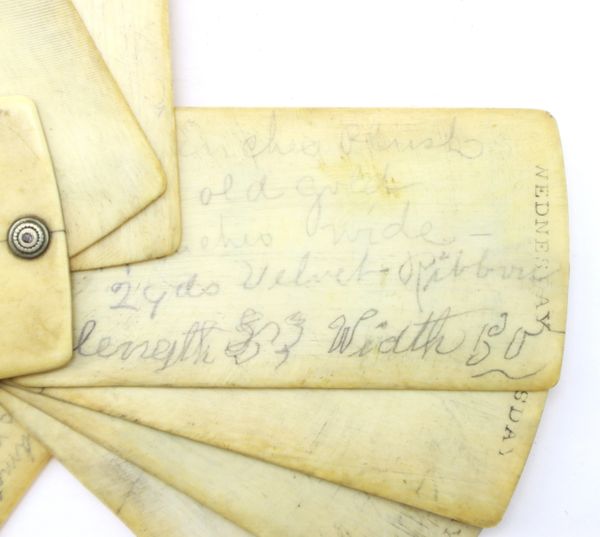 inches Plush
old gold
inches wide –
2 yds Velvet Ribbon
length Width
WEDNESDAY
SDAY